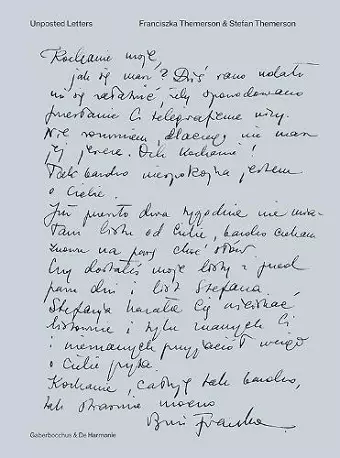 Unposted Letters
Franciszka Themerson & Stefan Themerson
Kochanie moje,
jak się masz? Dziś rano udało
mi się załatwić, żeby spowodowano
przesłanie Ci telegraficzne wizy.
Nie rozumiem, dlaczego nie masz
jej jeszcze. Och kochanie!
Tak bardzo niespokojna jestem
o Ciebie.
Już prawie dwa tygodnie nie mia-
łam listu od Ciebie, bardzo czekam
znowu na parę choć słów
Czy dostałeś moje listy z przed
paru dni i list Stefana
Stefania kazała Cię uściskać
listownie i tylu znanych Ci
i nieznanych przyjaciół wciąż
o Ciebie pyta.
Kochanie, całuję tak bardzo,
tak strasznie mocno
Franka
Gaberbocchus & De Harmonie